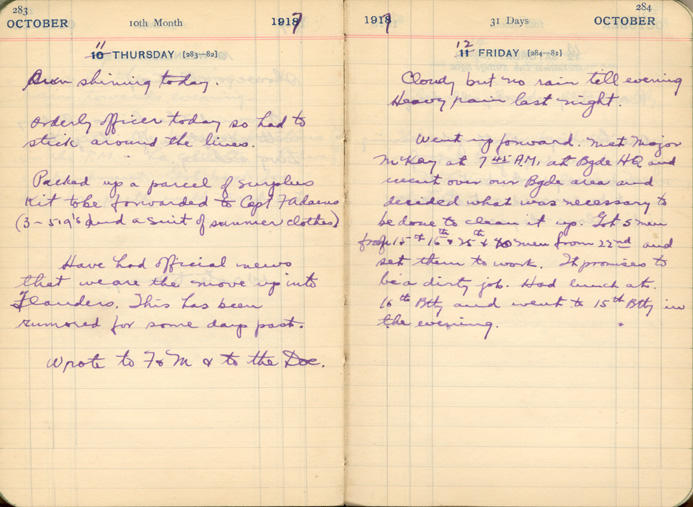 283
OCTOBER 10th Month 1917
11 THURSDAY [283—82]
Sun shining today.
Orderly officer today so had to
stick around the lines.
Packed up a parcel of surplus
Kit to be forwarded to Capt F Adams
(3 – 5.9's and a suit of summer clothes)
Have had official news
that we are the move up into
Flanders. This has been
rumored for some days past.
Wrote to F & M & to the Doc.
284
1917 31 Days OCTOBER
12 FRIDAY [284—81]
Cloudy but no rain till evening
Heavy rain last night.
Went up forward. Met Major
McKay at 7 A.M. at Bgde HQ and
went over our Bgde area and
decided what was necessary to
be done to clean it up. Got 5 men
from 15th 16th & 25th & men from 22nd and
set them to work. It promises to
be a dirty job. Had lunch at
16th Bty and went to 15th Bty in
the evening.